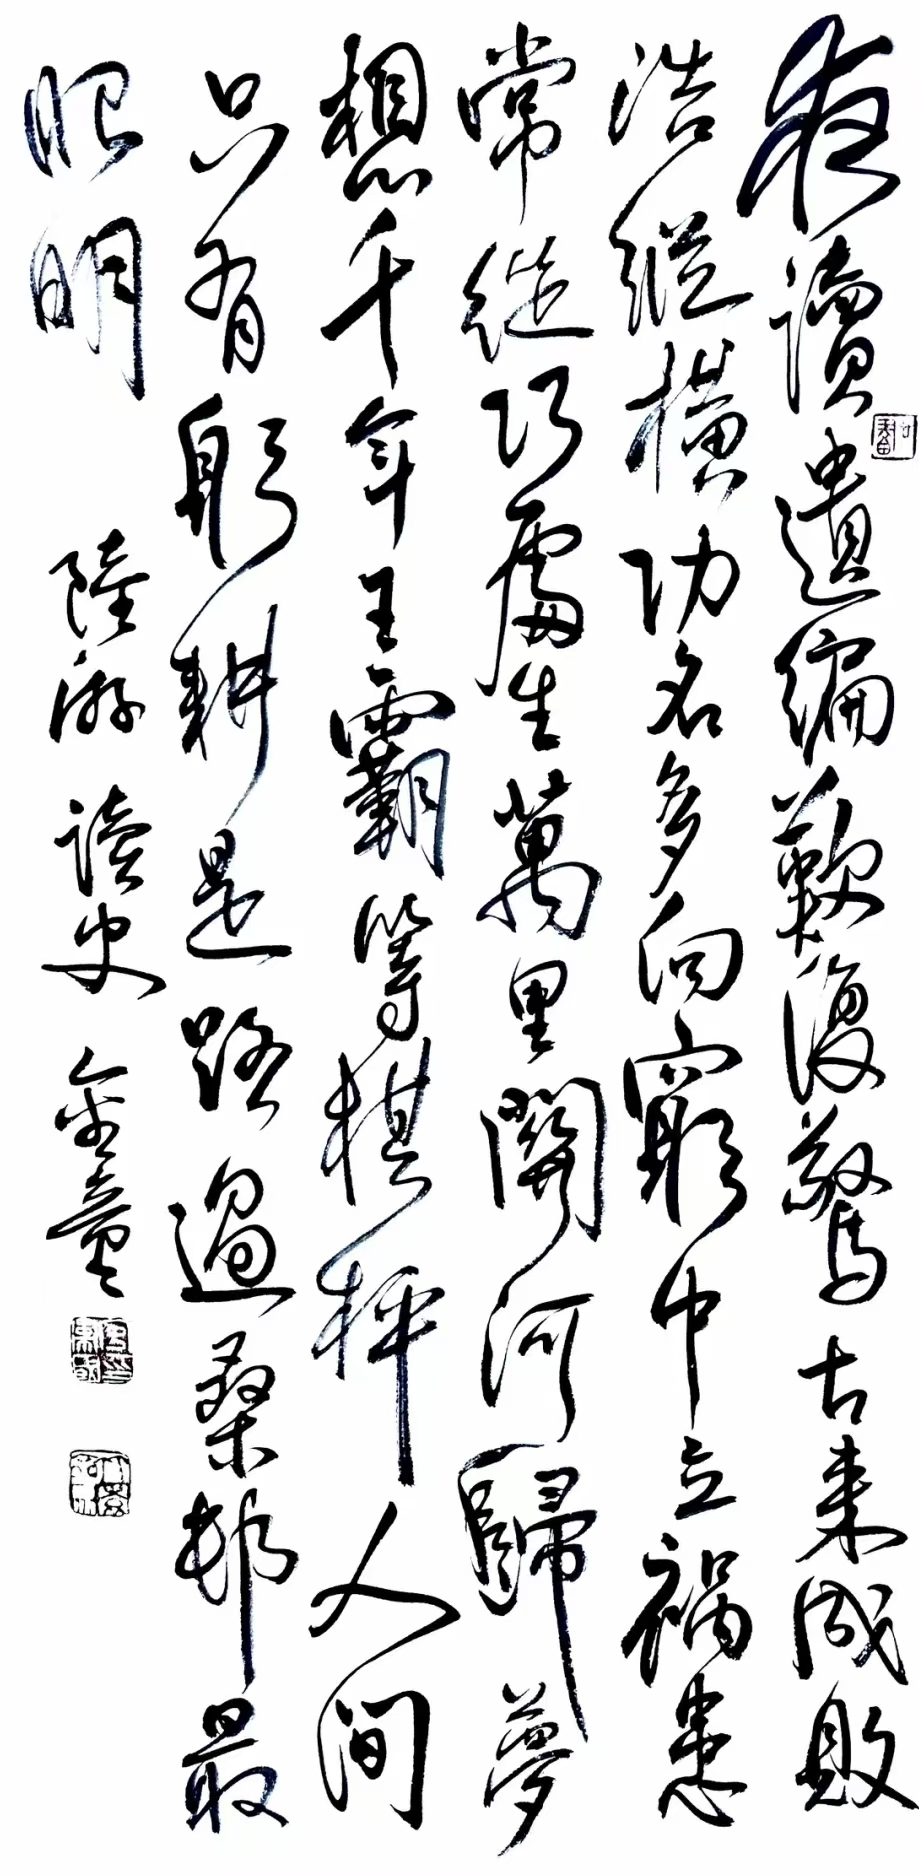 夜讀遺編歎復驚古来成敗
浩縱横功名多向窮中立禍患
常從巧處生萬里關河歸夢
想千年王霸等棋枰人间
只有躬耕是路過桑村最
眼明
陸游讀史金童